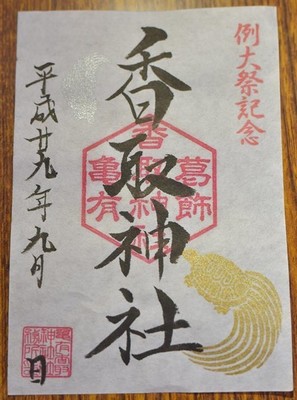 例大祭記念
香取神社
葛飾
香取神社
亀有
平成廿九年九月 日